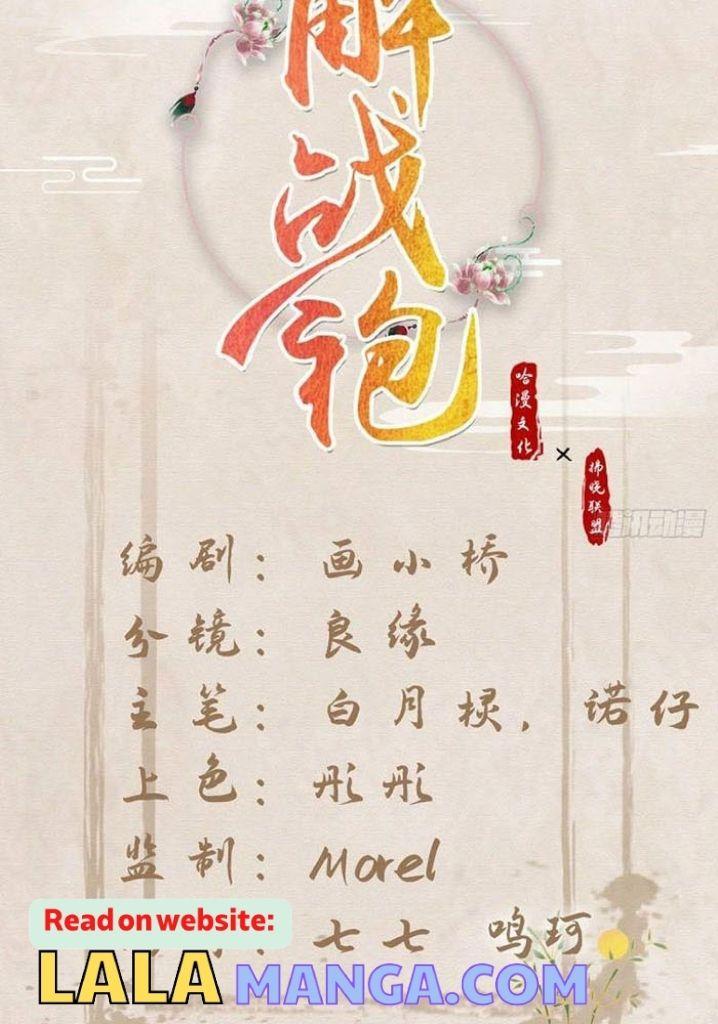 解
战
袍
哈漫文化
×
拂晓联盟
腾讯动漫
编剧：画小桥
分镜：良缘
主笔：白月棂，诺仔
上色：彤彤
监制：Morel
七七 鸣珂
Read on website:
LALA MANGA.COM